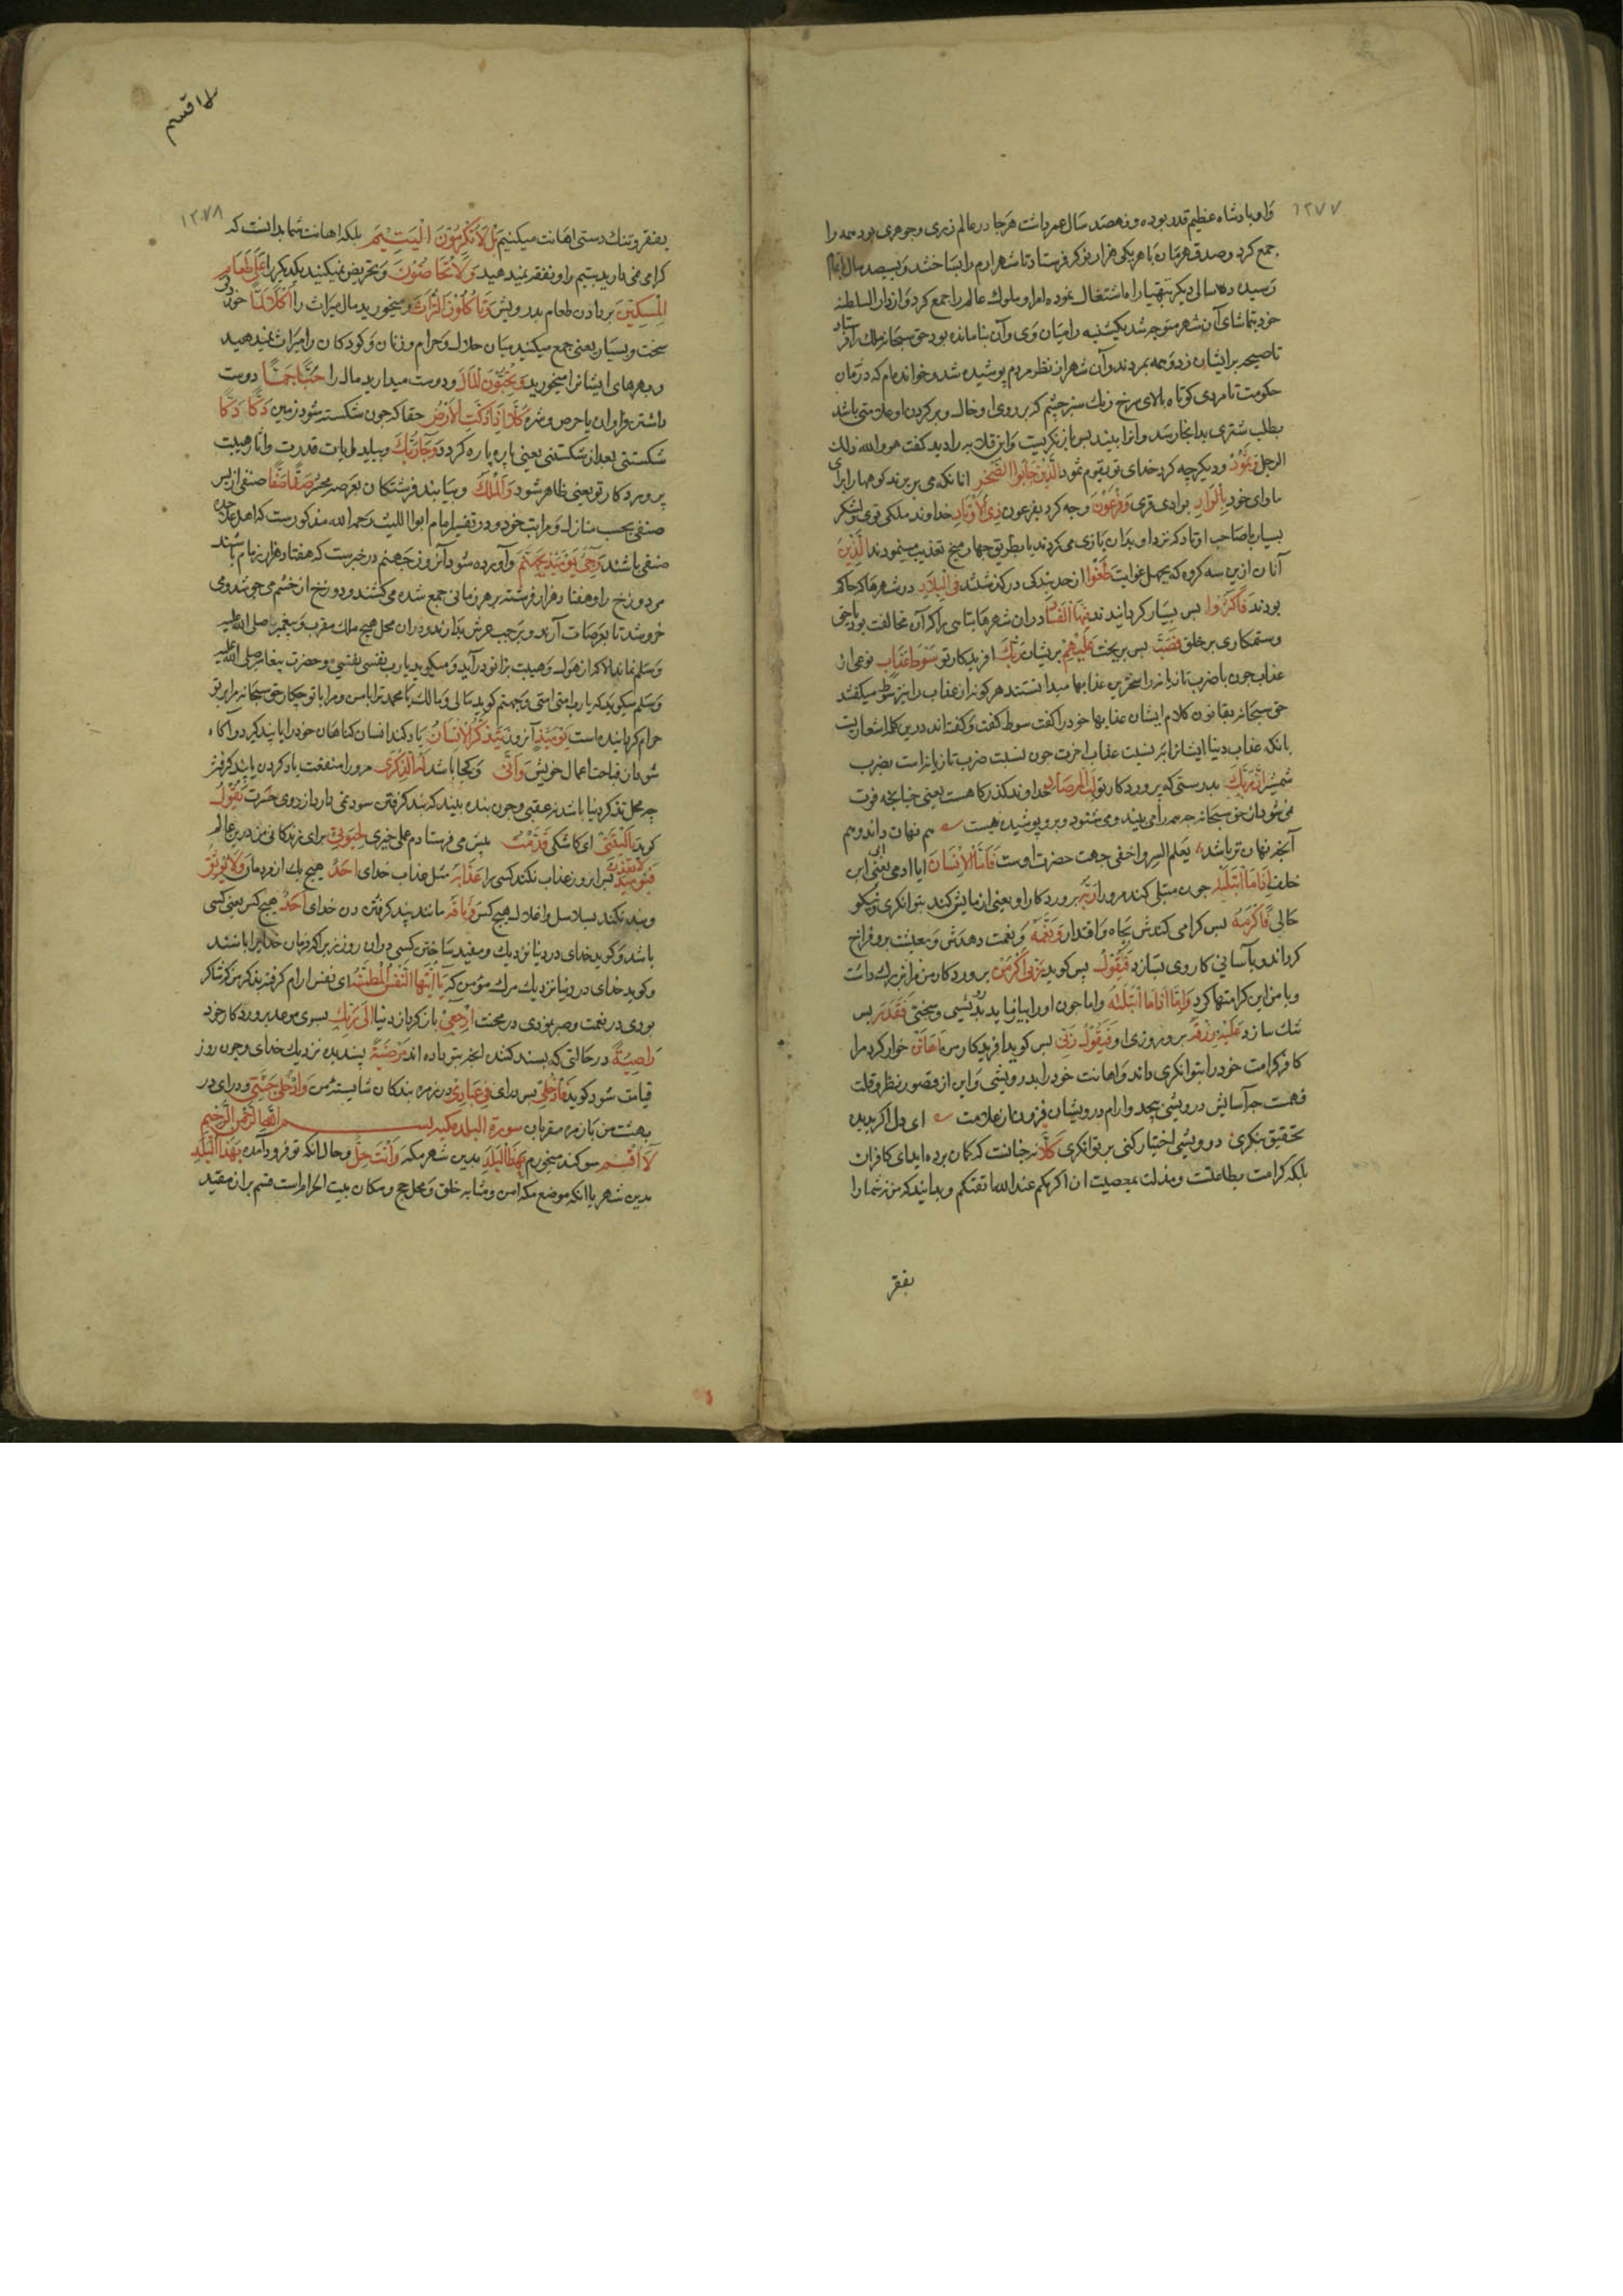 ۱۲۷۷
و او پادشاه عظیم قدر بوده و نهصد سال عمر داشت هرجا در عالم زری و جوهری بود همه را
جمع کرد و صد قهرمان با هر یکی هزار نوکر فرستاد تا شهر ارم را بساختند و سیصد سال باتمام
رسید ده سالی دیگر بتهیه راه اشتغال نموده امرا و ملوک عالم را جمع کرد و از دار السلطنه
خود بتماشای آن شهر متوجه شد یکشبه راه میان وی و آن بنا مانده بود حق سبحانه ملک را فرستاد
تا صیحه بر ایشان زد و همه بمردند و آن شهر از نظر مردم پوشیده شد و خوانده‌ام که در زمان
حکومت تا مردی کوتاه بالای سرخ رنک سبز چشم که بر روی او خال و بر کردن او علامتی باشد
بطلب شتری بدانجا رسد و انرا بیند پس باز نکریست و ابن قلابه را دید کفت هو والله ذلک
الرجل وَثَمُودَ و دیکر چه کرد خدای تو بقوم ثمود الَّذِینَ جَابُوا الصَّخْرَ انانکه می بریدند کوهها را برای
ماوای خود بِالْوَادِ بوادی قری وَفِرْعَوْنَ و چه کرد بفرعون ذِی الْأَوْتَادِ خداوند ملکی قوی و لشکر
بسیار یا صاحب اوتاد که نزد او بدان بازی می کردند یا بطریق چهار میخ تعذیب مینمودند الَّذِینَ
آنان ازین سه کروه که بجهل غوایت طَغَوْا از حد بندکی درکذشتند فِی الْبِلَادِ در شهرها که حاکم
بودند فَاکْثَرُوا پس بسیار کردانیدند فِیهَا الْفَسَادَ دران شهرها تباهی را که آن مخالفت بود با حق
و ستمکاری بر خلق فَصَبَّ پس بریخت عَلَیْهِمْ بریشان رَبُّکَ افریدکار تو سَوْطَ عَذَابٍ نوعی از
عذاب چون با ضرب تازیانه را سخترین عذابها میدانستند هرکونه از عذاب را نیز سوط میکفتند
حق سبحانه بقانون کلام ایشان عذابها خود را کفت سوط کفت و کفته‌اند درین کلمه اشعاریست
بانکه عذاب دنیا ایشانرا به نسبت عذاب اخرت چون نسبت ضرب تازیانه است بضرب
شمشیر اِنَّ رَبَّکَ بدرستی که پروردکار تو لَبِالْمِرْصَادِ خداوند کذرکاهست یعنی چنانچه فوت
نمی شود از حق سبحانه همه را می بیند و می شنود و برو پوشیده نیست هم نهان داند و هم
آنچه نهان تر باشد یعلم السر و اخفی جهت حضرت اوست فَاَمَّا الْاِنْسَانُ اما ادمی یعنی ابی
خلف اِذَا مَا ابْتَلَیهُ چون مبتلی کند مرو را رَبُّهُ پروردکار او یعنی ازمایش کند بتوانکری و نیکو
حالی فَاَکْرَمَهُ پس کرامی کندش بجاه و اقتدار وَنَعَّمَهُ و نعمت دهدش و معیشت برو فراخ
کرداند و بآسانی کار وی بسازد فَیَقُولُ پس کوید رَبِّی اَکْرَمَنِ پروردکار من مرا بزرک داشت
و با من این کرامتها کرد وَاَمَّا اِذَا مَا ابْتَلَیهُ و اما چون او را بیازماید بدرویشی و سختی فَقَدَرَ پس
تنک سازد عَلَیْهِ رِزْقَهُ برو روزی او فَیَقُولُ رَبِّی پس کوید افریدکار من اَهَانَنِ خوار کرد مرا
کافر کرامت خود را بتوانکری داند و اهانت خود را بدرویشی و این از قصور نظر و قلت
فهمست چه آسایش درویشی بیحد و ارام درویشان فزون از علامت ای دل اکر بدیده
تحقیق بنکری درویشی اختیار کنی بر توانکری کَلَّا نه چنانست که کمان برده‌اید ای کافران
بلکه کرامت بطاعتست و مذلت بمعصیت ان اکرمکم عند الله اتقیکم و بدانید که من نه شما را
بفقر
لا اقسم
۱۲۷۸
بفقر و تنک دستی اهانت میکنیم بَلْ لَا تُکْرِمُونَ الْیَتِیمَ بلکه اهانت شما بدانست که
کرامی نمی دارید یتیم را و نفقه نمیدهید وَلَا تَحَاضُّونَ و تحریض نمیکنید یکدیکر را عَلَی طَعَامِ
الْمِسْکِینِ بر دادن طعام بدرویش وَتَأْکُلُونَ التُّرَاثَ و میخورید مال میراث را اَکْلًا لَمًّا خوردنی
سخت و بسیار یعنی جمع میکنید میان حلال و حرام و زنان و کودکان را میراث نمیدهید
و بهرهای ایشانرا میخورید وَتُحِبُّونَ الْمَالَ و دوست میدارید مال را حُبًّا جَمًّا دوست
داشتن فراوان با حرص و شره کَلَّا اِذَا دُکَّتِ الْاَرْضُ حقا که چون شکسته شود زمین دَکًّا دَکًّا
شکستنی بعد از شکستنی یعنی پاره پاره کردد وَجَاءَ رَبُّکَ و بیاید ایات قدرت و اثار هیبت
پروردکار تو یعنی ظاهر شود وَالْمَلَکُ و بیایند فرشتکان بعرصه محشر صَفًّا صَفًّا صفی از پس
صفی بحسب منازل و مراتب خود و در تفسیر امام ابو اللیث رحمه الله مذکورست که اهل
صفی باشند وَجِیءَ یَوْمَئِذٍ بِجَهَنَّمَ و آورده شود آنروز جهنم در خبرست که هفتاد هزار زمام باشند
مر دوزخ را و هفتاد هزار فرشته بر هر زمامی جمع شده می کشند و دوزخ از خشم می جوشد و می
خروشد تا بعرصات آرند و بر چپ عرش بدارند و دران محل هیچ ملک مقرب و پیغمبر صلی الله علیه
و سلم نماند الا که از هول و هیبت بزانو درآید و میکوید یا رب نفسی نفسی و حضرت پیغامبر صلی الله علیه
و سلم میکوید که یا رب امتی امتی و جهنم کوید مالی و مالک یا محمد ترا با من و مرا با تو چکار حق سبحانه مرا بر تو
حرام کردانیده است یَوْمَئِذٍ آنروز یَتَذَکَّرُ الْاِنْسَانُ یاد کند انسان کناهان خود را یا پند کیرد و اکاه
شود از قباحت اعمال خویش وَاَنَّی و کجا باشد لَهُ الذِّکْرَی مرو را منفعت یاد کردن یا پند کرفتن
چه محل تذکر دنیا باشد نه عقبی و چون بنده بیند که پند کرفتن سود نمی دارد از روی حسرت یَقُولُ
کوید یَا لَیْتَنِی ای کاشکی قَدَّمْتُ پیش می فرستادم عملی خیری لِحَیَوتِی برای زندکانی من درین عالم
فَیَوْمَئِذٍ لَا یُعَذِّبُ پس ان روز عذاب نکند کسی را عَذَابَهُ مثل عذاب خدای اَحَدٌ هیچ یک از مردمان وَلَا یُوثِقُ
و بند نکند بسلاسل و اغلال هیچ کس وَثَاقَهُ مانند بند کرفتن خدای اَحَدٌ هیچ کس یعنی کسی
باشد و کوید خدای در دنیا نزدیک
و کوید خدای در دنیا نزدیک مرک مؤمن که یَا اَیَّتُهَا النَّفْسُ الْمُطْمَئِنَّةُ ای نفس ارام کرفته بذکر من که شاکر
بودی در نعمت و صبر نمودی در محنت ارْجِعِی باز کرد از دنیا اِلَی رَبِّکِ بسوی موعد پروردکار خود
رَاضِیَةً در حالتی که پسند کننده انچه بتو داده‌اند مَرْضِیَّةً پسندیده نزدیک خدای و چون روز
قیامت شود کوید فَادْخُلِی پس درای فِی عِبَادِی در زمره بندکان شایسته من وَادْخُلِی جَنَّتِی و درای در
بهشت من با زمره مقربان سورة البلد مکیه بسم الله الرحمن الرحیم
لَا اُقْسِمُ سوکند میخورم بِهَذَا الْبَلَدِ بدین شهر مکه وَاَنْتَ حِلٌّ و حال انکه تو فرود آمده بِهَذَا الْبَلَدِ
بدین شهر با انکه موضع مکه امن و مثابه خلق و محل حج و مکان بیت الحرام است قسم بران مقید